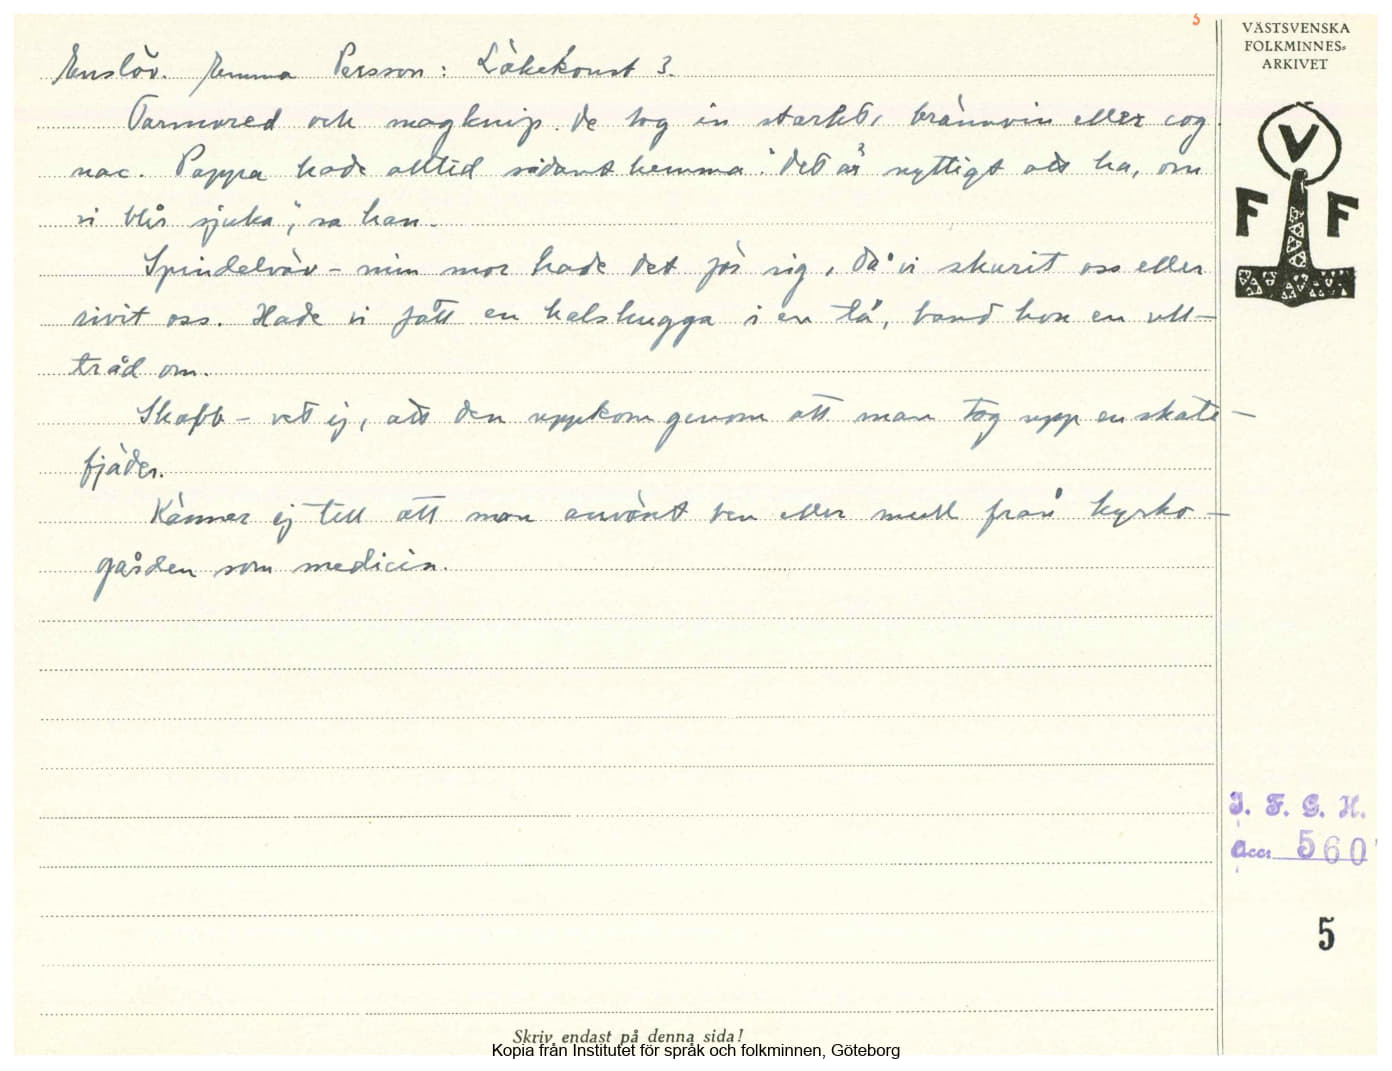 3
VÄSTSVENSKA
FOLKMINNES-
ARKIVET
Enslöv. Emma Persson: Läkekonst 3.
Tarmvred och magknip. De tog in starkt, brännvin eller cog
nac. Pappa hade alltid sådant hemma. "Det är nyttigt att ha, om
vi blir sjuka", sa han.
Spindelväv - min mor hade det för sig, då vi skurit oss eller
rivit oss. Hade vi fått en halshugga i en tå, band hon en ull-
tråd om.
Skabb - vet ej, att den uppkom genom att man tog upp en skat-
fjäder.
Känner ej till att man använt ben eller mull från kyrko-
gården som medicin.
V
F F
I. F. G. H.
Acc: 560
5
Skriv endast på denna sida!
Kopia från Institutet för språk och folkminnen, Göteborg